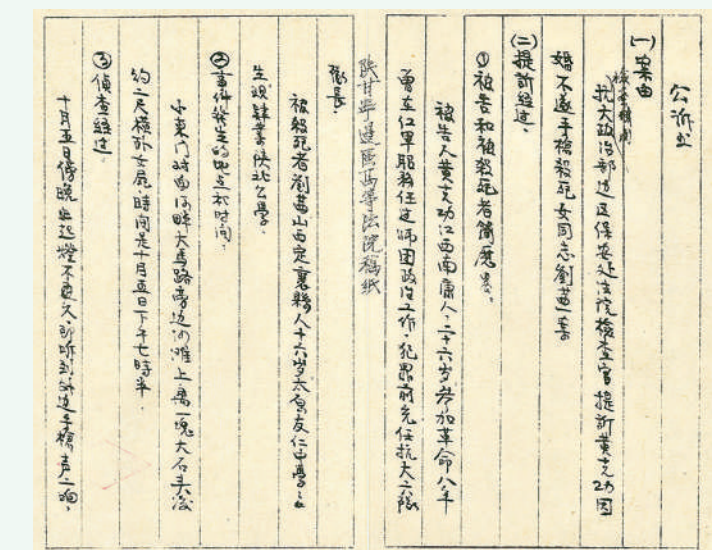 公訴書
(一)案由
檢查機關
抗大政治部边区保安处法院檢查官提訴黄克功因
婚不遂手槍殺死女同志劉茜一案
(二)提訴经过.
①被告和被殺死者简歷.
被告人黄克功江西南康人.二十六岁参加革命八年
曾在红軍服務任过师团政治工作.犯罪前充任抗大六隊
陕甘寧邊區高等法院稿纸
隊長.
被殺死者劉茜山西定襄縣人十六岁太原友仁中學之
生现肄業陕北公學.
②事件發生的地点和时间.
小東门对面河畔大馬路旁边河滩上离一塊大石头旁
约二尺横卧女屍.時间是十月五日下午七時半.
③偵查经过.
十月五日傍晚出起燈不更久即听到外边手槍声二响,